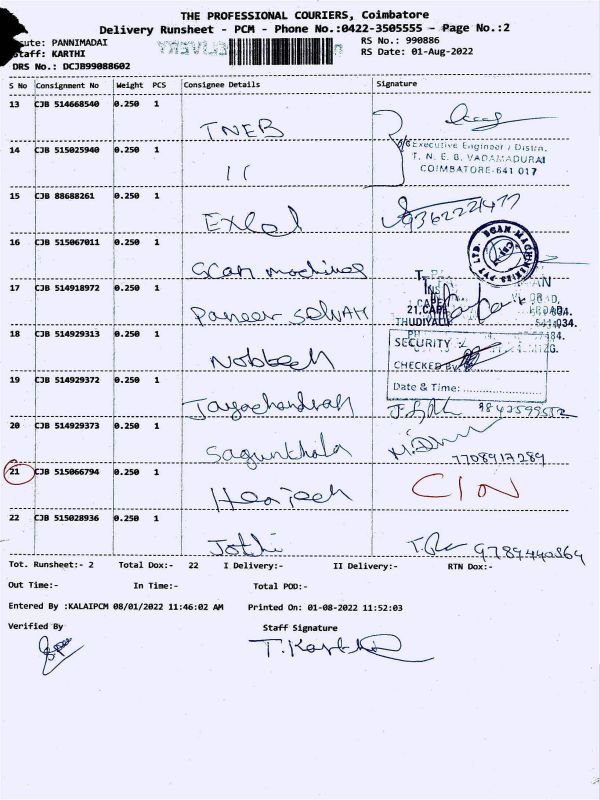 THE PROFESSIONAL COURIERS, Coimbatore
Delivery Runsheet - PCM - Phone No.:0422-3505555 - Page No.:2
ute: PANNIMADAI
RS No.: 990886
taff: KARTHI
RS Date: 01-Aug-2022
DRS No.: DCJB99088602
S No Consignment No Weight PCS Consignee Details Signature
13 CJB 514668540 0.250 1
TNEB
14 CJB 515025940 0.250 1
Executive Engineer / Distn.
T. N. E. B. VADAMADURAI
COIMBATORE-641 017
11
15 CJB 88688261 0.250 1
Excel
9362221477
16 CJB 515067011 0.250 1
Scan machines
17 CJB 514918972 0.250 1
Paneer Selvam
18 CJB 514929313 0.250 1
SECURITY
CHECKED By
Nobtech
19 CJB 514929372 0.250 1
Date & Time:
Jayachandran
20 CJB 514929373 0.250 1
Sagunthala
7708917289
21 CJB 515066794 0.250 1
CIN
22 CJB 515028936 0.250 1
Jothi
9789440864
Tot. Runsheet:- 2 Total Dox:- 22 I Delivery:- II Delivery:- RTN Dox:-
Out Time:- In Time:- Total POD:-
Entered By :KALAIPCM 08/01/2022 11:46:02 AM Printed On: 01-08-2022 11:52:03
Verified By Staff Signature
T.Karthi